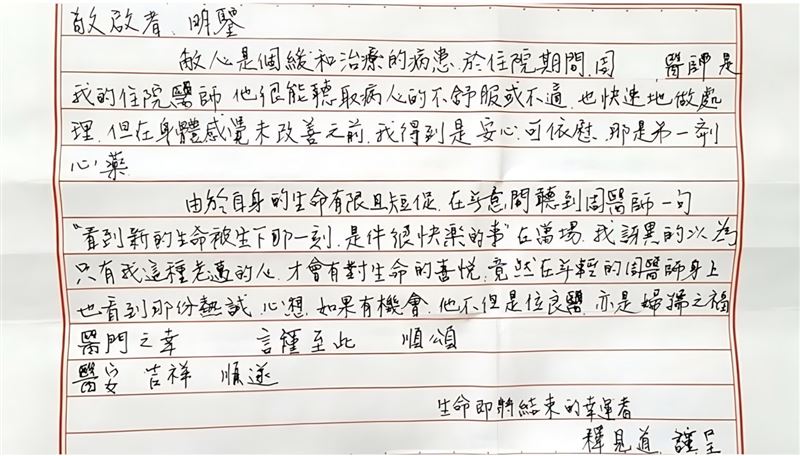 敬啟者、明鑒
敝人是個緩和治療的病患.於住院期間.周 醫師是
我的住院醫師 他很能聽取病人的不舒服或不適.也快速地做處
理.但在身體感覺未改善之前.我得到是安心.可依慰.那是另一劑
心藥.
由於自身的生命有限且短促.在無意間聽到周醫師一句
"看到新的生命被生下那一刻.是件很快樂的事"在當場.我訝異的以為
只有我這種老邁的人.才會有對生命的喜悅.竟然在年輕的周醫師身上
也看到那份熱誠.心想.如果有機會.他不但是位良醫.亦是婦孺之福
醫門之幸 言謹至此 順頌
醫安 吉祥 順遂
生命即將結束的幸運者
釋見道 謹呈